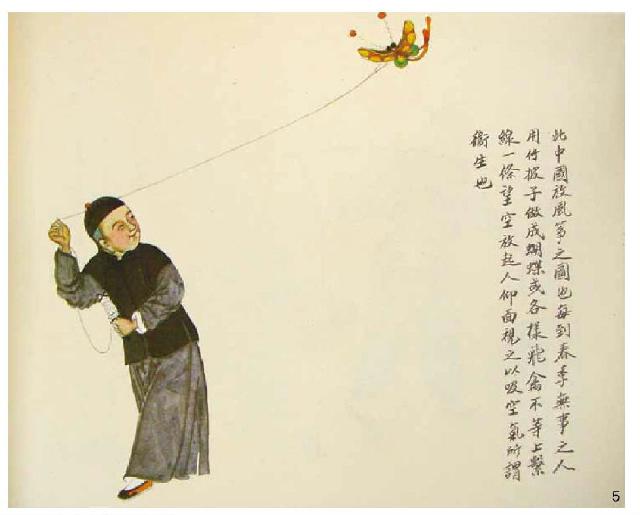 此中國放風箏之圖也每到春季無事之人
用竹披子做成蝴蝶或各樣飛禽不等上繫
線一條望空放起人仰面視之以吸空氣所謂
衛生也
5